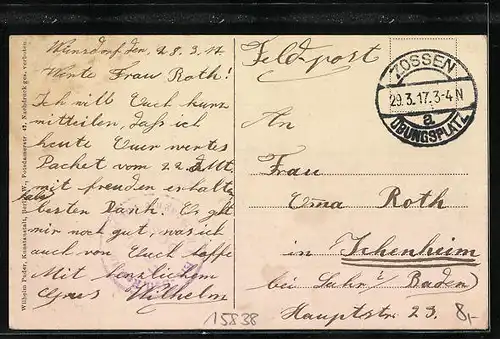 Wünsdorf den, 28.3.17
Feldpost
Werte Frau Roth!
Ich will Euch kurz
mitteilen, daß ich
heute Euer wertes
Packet vom 22. d. Mt.
mit freuden erhalte
habe
besten Dank. Es geht
mir noch gut, was ich
auch von Euch hoffe
Mit herzlichem
Grus Wilhelm
ZOSSEN
29.3.17.3-4 N
a
ÜBUNGSPLATZ
An
Frau
Emma Roth
in Ichenheim
bei Lahr i/ Baden)
Hauptstr 23.
8,-
15838
Wilhelm Puder, Kunstanstalt, Berlin W., Potsdamerstr. 42, Nachdruck ges. verboten.